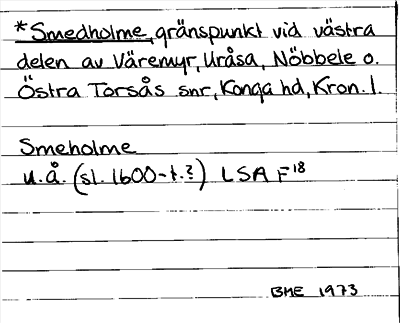 *Smedholme, gränspunkt vid västra
delen av Väremyr, Uråsa, Nöbbele o.
Östra Torsås snr, Konga hd, Kron. l.
Smeholme
u.å. (sl. 1600-t.?) LSA F18
BME 1973